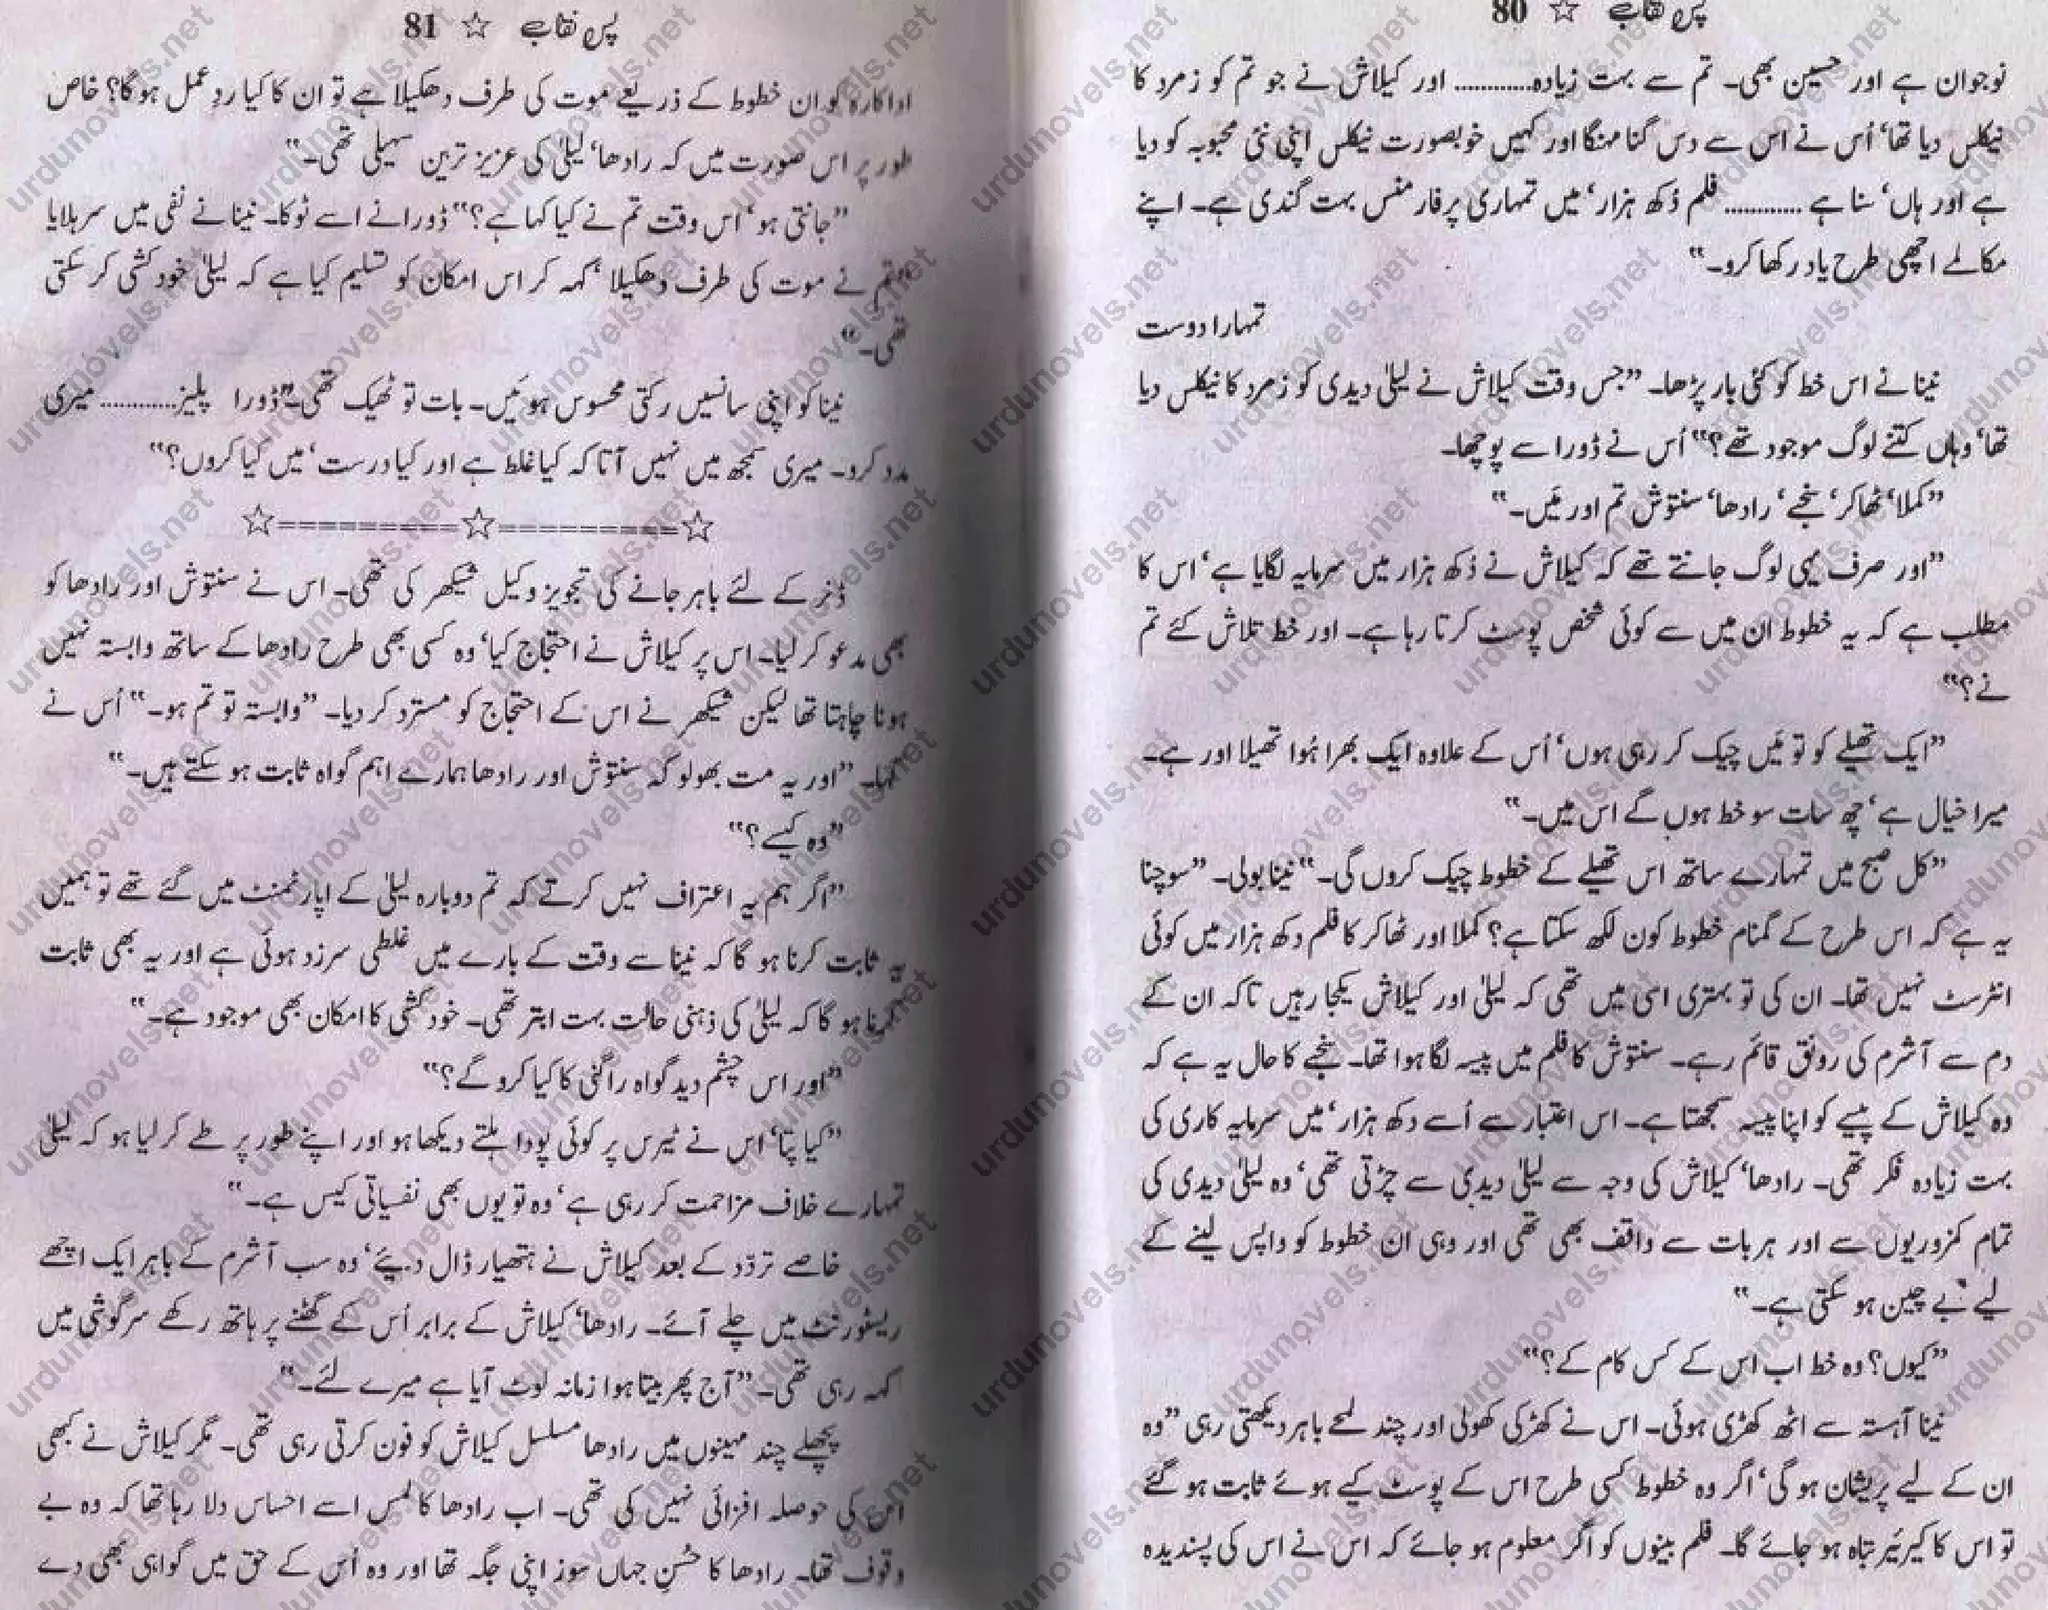 پس نقاب ☆ 80
نوجوان ہے اور حسین بھی۔ تم سے بہت زیادہ............ اور کیلاش نے جو تم کو زمرد کا
نیکلس دیا تھا‘ اُس نے اس سے دس گنا مہنگا اور کہیں خوبصورت نیکلس اپنی نئی محبوبہ کو دیا
ہے اور ہاں‘ سنا ہے ............ فلم دُکھ ہزار‘ میں تمہاری پرفارمنس بہت گندی ہے۔ اپنے
مکالمے اچھی طرح یاد رکھا کرو۔“
تمہارا دوست
نینا نے اس خط کو کئی بار پڑھا۔ ”جس وقت کیلاش نے لیلیٰ دیدی کو زمرد کا نیکلس دیا
تھا‘ وہاں کتنے لوگ موجود تھے؟“ اُس نے ڈورا سے پوچھا۔
”کملا‘ ٹھاکر‘ سنجے‘ رادھا‘ سنتوش تم اور مَیں۔“
”اور صرف یہی لوگ جانتے تھے کہ کیلاش نے دُکھ ہزار میں سرمایہ لگایا ہے‘ اس کا
مطلب ہے کہ یہ خطوط ان میں سے کوئی شخص پوسٹ کرتا رہا ہے۔ اور خط تلاش کئے تم
نے؟“
”ایک تھیلے کو تو مَیں چیک کر رہی ہوں‘ اُس کے علاوہ ایک بھرا ہُوا تھیلا اور ہے۔
میرا خیال ہے‘ چھ سات سو خط ہوں گے اس میں۔“
”کل صبح میں تمہارے ساتھ اس تھیلے کے خطوط چیک کروں گی۔“ نینا بولی۔ ”سوچنا
یہ ہے کہ اس طرح کے گمنام خطوط کون لکھ سکتا ہے؟ کملا اور ٹھاکر کا فلم دکھ ہزار میں کوئی
انٹرسٹ نہیں تھا۔ ان کی تو بہتری اسی میں تھی کہ لیلیٰ اور کیلاش یکجا رہیں تاکہ ان کے
دم سے آشرم کی رونق قائم رہے۔ سنتوش کا فلم میں پیسہ لگا ہوا تھا۔ سنجے کا حال یہ ہے کہ
وہ کیلاش کے پیسے کو اپنا پیسہ سمجھتا ہے۔ اس اعتبار سے اُسے دکھ ہزار‘ میں سرمایہ کاری کی
بہت زیادہ فکر تھی۔ رادھا‘ کیلاش کی وجہ سے لیلیٰ دیدی سے چڑتی تھی‘ وہ لیلیٰ دیدی کی
تمام کمزوریوں سے اور ہر بات سے واقف بھی تھی اور وہی ان خطوط کو واپس لینے کے
لیے بے چین ہو سکتی ہے۔“
”کیوں؟ وہ خط اب اس کے کس کام کے؟“
نینا آہستہ سے اٹھ کھڑی ہوئی۔ اس نے کھڑکی کھولی اور چند لمحے باہر دیکھتی رہی ”وہ
ان کے لیے پریشان ہو گی‘ اگر وہ خطوط کسی طرح اس کے پوسٹ کیے ہوئے ثابت ہو گئے
تو اس کا کیریَر تباہ ہو جائے گا۔ فلم بینوں کو اگر معلوم ہو جائے کہ اس نے اس کی پسندیدہ
پس نقاب ☆ 81
اداکارہ کو ان خطوط کے ذریعے موت کی طرف دھکیلا ہے تو ان کا کیا ردِ عمل ہو گا؟ خاص
طور پر اس صورت میں کہ رادھا‘ لیلیٰ کی عزیز ترین سہیلی تھی۔“
”جانتی ہو‘ اس وقت تم نے کیا کہا ہے؟“ ڈورا نے اسے ٹوکا۔ نینا نے نفی میں سر ہلایا
”تم نے موت کی طرف دھکیلا‘ کہہ کر اس امکان کو تسلیم کیا ہے کہ لیلیٰ خودکشی کر سکتی
تھی۔“
نینا کو اپنی سانسیں رکتی محسوس ہوئیں۔ بات تو ٹھیک تھی۔ ”ڈورا پلیز............ میری
مدد کرو۔ میری سمجھ میں نہیں آتا کہ کیا غلط ہے اور کیا درست‘ میں کیا کروں؟“
☆==========☆==========☆
ڈنر کے لئے باہر جانے کی تجویز وکیل شیکھر کی تھی۔ اس نے سنتوش اور رادھا کو
بھی مدعو کر لیا۔ اس پر کیلاش نے احتجاج کیا‘ وہ کسی بھی طرح رادھا کے ساتھ وابستہ نہیں
ہونا چاہتا تھا لیکن شیکھر نے اس کے احتجاج کو مسترد کر دیا۔ ”وابستہ تو تم ہو۔“ اُس نے
کہا۔ ”اور یہ مت بھولو کہ سنتوش اور رادھا ہمارے اہم گواہ ثابت ہو سکتے ہیں۔“
”وہ کیسے؟“
”اگر ہم یہ اعتراف نہیں کرتے کہ تم دوبارہ لیلیٰ کے اپارٹمنٹ میں گئے تھے تو ہمیں
یہ ثابت کرنا ہو گا کہ نینا سے وقت کے بارے میں غلطی سرزد ہوئی ہے اور یہ بھی ثابت
کرنا ہو گا کہ لیلیٰ کی ذہنی حالت بہت ابتر تھی۔ خودکشی کا امکان بھی موجود ہے۔“
”اور اس چشم دید گواہ راگنی کا کیا کرو گے؟“
”کیا پتا‘ اس نے ٹیرس پر کوئی پودا ہلتے دیکھا ہو اور اپنے طور پر طے کر لیا ہو کہ لیلیٰ
تمہارے خلاف مزاحمت کر رہی ہے‘ وہ تو یوں بھی نفسیاتی کیس ہے۔“
خاصے تردّد کے بعد کیلاش نے ہتھیار ڈال دیئے‘ وہ سب آشرم کے باہر ایک اچھے
ریسٹورنٹ میں چلے آئے۔ رادھا‘ کیلاش کے برابر اُس کے گھٹنے پر ہاتھ رکھے سرگوشی میں
کہہ رہی تھی۔ ”آج پھر بیتا ہوا زمانہ لوٹ آیا ہے میرے لئے۔“
پچھلے چند مہینوں میں رادھا مسلسل کیلاش کو فون کرتی رہی تھی۔ مگر کیلاش نے کبھی
اس کی حوصلہ افزائی نہیں کی تھی۔ اب رادھا کا لمس اسے احساس دلا رہا تھا کہ وہ بے
وقوف تھا۔ رادھا کا حُسنِ جہاں سوز اپنی جگہ تھا اور وہ اُس کے حق میں گواہی بھی دے